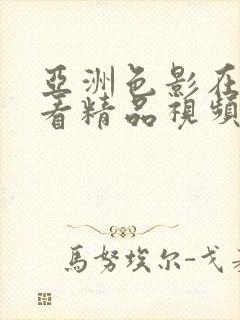 亞洲色影在
著精品視頻
馬努埃尔-戈